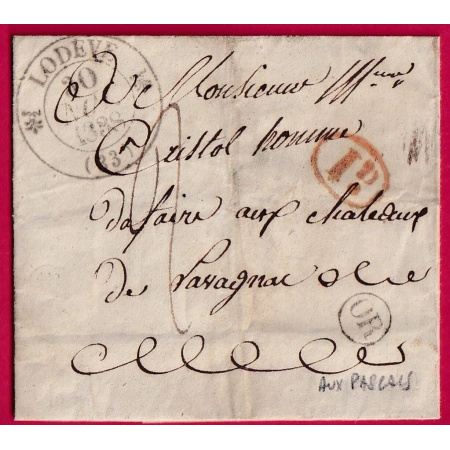 LODEVE
(33)
1D
A Monsieur
Cristol homme
dafaire aux chateaux
de Lavagnac
OR
AUX PASCALS